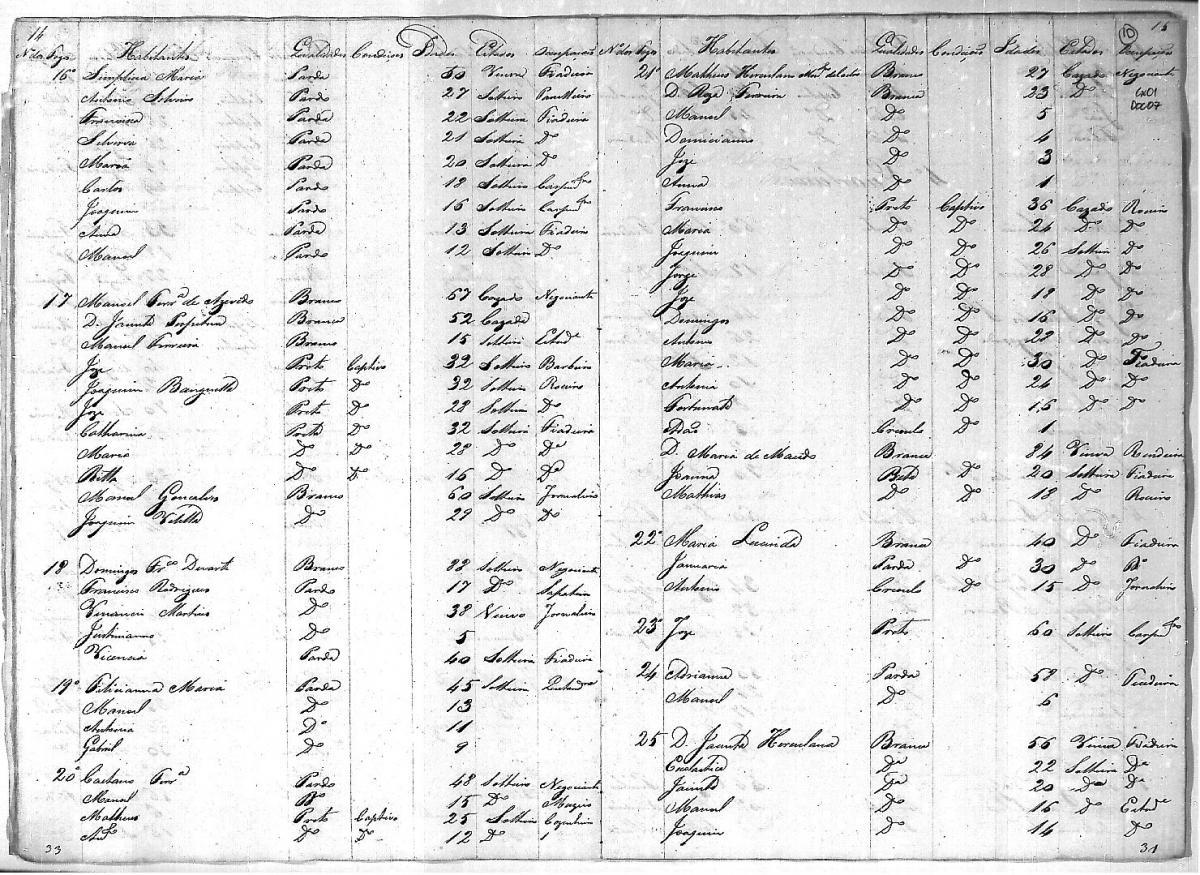 14
Nº dos Fogos Habitantes Qualidades Condições Idades Estados Occupação
16º Simpliciana Maria Parda 50 Viuva Fiadeira
Antonio Silverio Pardo 27 Solteiro
Francisca Parda 22 Solteira Fiadeira
Silveria Parda 21 Solteira Dº
Maria Parda 20 Solteira Dº
Carlos Pardo 18 Solteiro Carpinrº
Joaquim Pardo 16 Solteiro Carpinrº
Anna Parda 13 Solteira Fiadeira
Manoel Pardo 12 Solteiro Dº
17 Manoel Ferrª de Azevedo Branco 57 Cazado Negociante
D. Jacinta Perpetua Branca 52 Cazada
Manoel Ferreira Branco 15 Solteiro Estude
Joze Preto Captivo 32 Solteiro Barbeiro
Joaquim Banguella Preto Dº 32 Solteiro Roceiro
Joze Preto Dº 28 Solteiro Dº
Catharina Preta Dº 32 Solteira Fiadeira
Maria Dº Dº 28 Dº Dª
Ritta Dº Dº 16 D Dª
Manoel Goncalves Branco 60 Solteiro Jornaleiro
Joaquim Villella Dº 29 Dº Dº
18 Domingos Frcº Duarte Branco 28 Solteiro Negociante
Francisco Rodrigues Pardo 17 Dº Sapateiro
Venancio Martins Dº 38 Viuvo Jornaleiro
Justiniano Dº 5
Vicencia Parda 40 Solteira Fiadeira
19º Feliciana Maria Parda 45 Solteira
Manoel Dº 13
Antonia Dº 11
Gabriel Dº 9
20º Caetano Ferrª Pardo 48 Solteiro Negociante
Manoel Dº 15 Dº Muzico
Matheus Preto Captivo 25 Solteiro
Antº Dº Dº 12 Dº
33
15
10
Nº dos Fogos Habitantes Qualidades Condição Idades Estados Occupação
CX01
DOC07
21º Matheus Herculano Branco 27 Cazado Negociante
D. Roza Ferreira Branca 23 Dº
Manoel Dº 5
Domiciano Dº 4
Joze Dº 3
Anna Dº 1
Francisco Preto Captivo 36 Cazado Roceiro
Maria Dº Dº 24 Dº Dº
Joaquim Dº Dº 26 Solteiro Dº
Jorge Dº Dº 28 Dº Dº
Joze Dº Dº 18 Dº Dº
Domingos Dº Dº 16 Dº Dº
Antonio Dº Dº 22 Dº Dº
Maria Dº Dº 30 Dº Fiadeira
Antonia Dº Dº 24 Dº Dº
Fortunata Dº Dº 16 Dº Dº
Adão Creoulo Dº 1
D. Maria de Macedo Branca 84 Viuva Rendeira
Joanna Dº 20 Solteira Fiadeira
Mathias Dº Dº 18 Dº Roceiro
22º Maria Lucinda Branca 40 Dº Fiadeira
Januaria Parda Dº 30 Dº Dº
Antonio Creoulo Dº 15 Dº Jornaleiro
23º Joze Preto 60 Solteiro Carpinrº
24 Adrianna Parda 58 Dº Fiadeira
Manoel Dº 6
25 D. Jacinta Herculana Branca 56 Viuva Fiadeira
Escolastica Dª 22 Solteira Dª
Jacinta Dª 20 Dª Dª
Manoel Dº 16 Dº Estude
Joaquim Dº 14 Dº
31